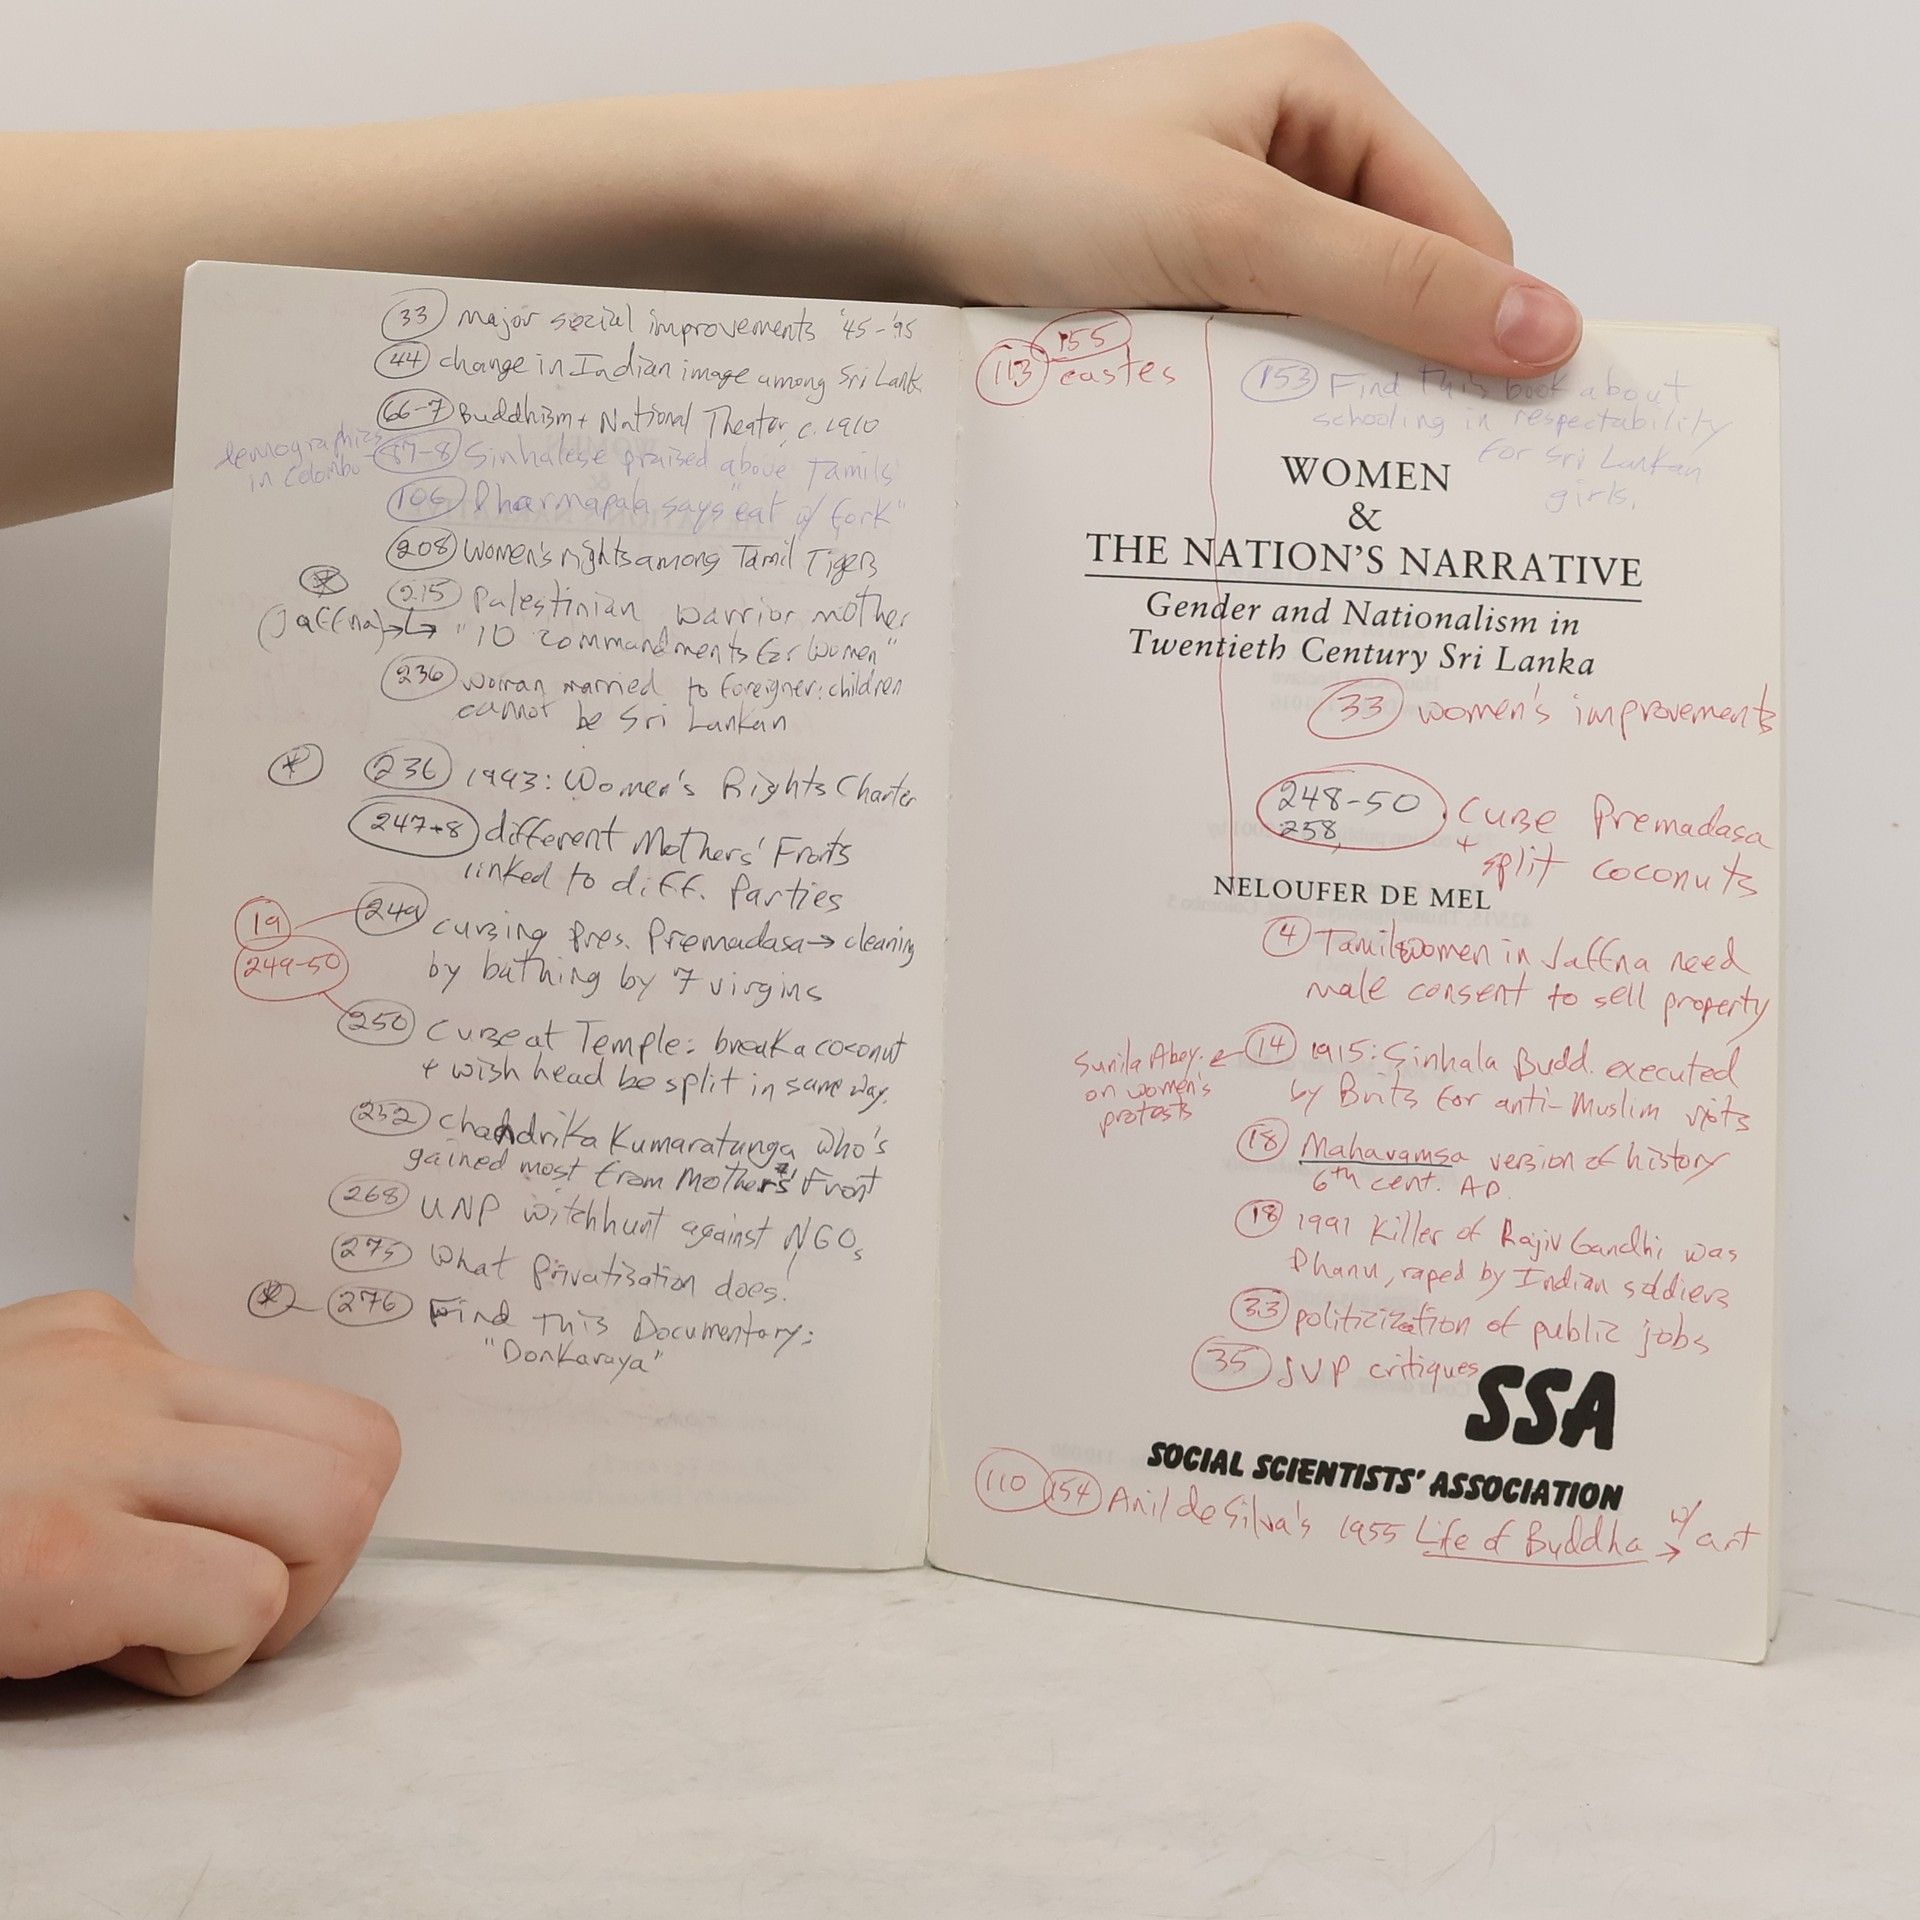 33 major social improvements '45-'95
44 change in Indian image among Sri Lank.
66-7 Buddhism + National Theater, c. 1910
demographics
in Colombo
87-8 Sinhalese praised above Tamils
106 Dharmapala says "eat w/ fork"
208 Women's rights among Tamil Tigers
215 Palestinian warrior mother
(Jaffna) → "10 commandments for women"
236 woman married to foreigner: children
cannot be Sri Lankan
* 236 1993: Women's Rights Charter
247+8 different Mothers' Fronts
linked to diff. Parties
19 249 cursing Pres. Premadasa → cleaning
by bathing by 7 virgins
249-50
250 Curse at Temple: break a coconut
+ wish head be split in same way.
252 Chandrika Kumaratunga who's
gained most from Mothers' Front
268 UNP witchhunt against NGOs
275 What Privatisation does!
* 276 Find this Documentary:
"Donkaraya"
155
113 castes
153 Find this book about
schooling in respectability
for Sri Lankan
girls.
WOMEN
&
THE NATION'S NARRATIVE
Gender and Nationalism in
Twentieth Century Sri Lanka
33 women's improvements
248-50 Curse Premadasa
258, + split coconuts
NELOUFER DE MEL
4 Tamil women in Jaffna need
male consent to sell property
14 1915: Sinhala Budd. executed
by Brits for anti-Muslim riots
Sunila Abey.
on women's
protests
18 Mahavamsa version of history
6th cent. AD.
18 1991 Killer of Rajiv Gandhi was
Dhanu, raped by Indian soldiers
33 politicization of public jobs
35 JVP critiques
SSA
SOCIAL SCIENTISTS' ASSOCIATION
110 154 Anil de Silva's 1955 Life of Buddha → w/ art